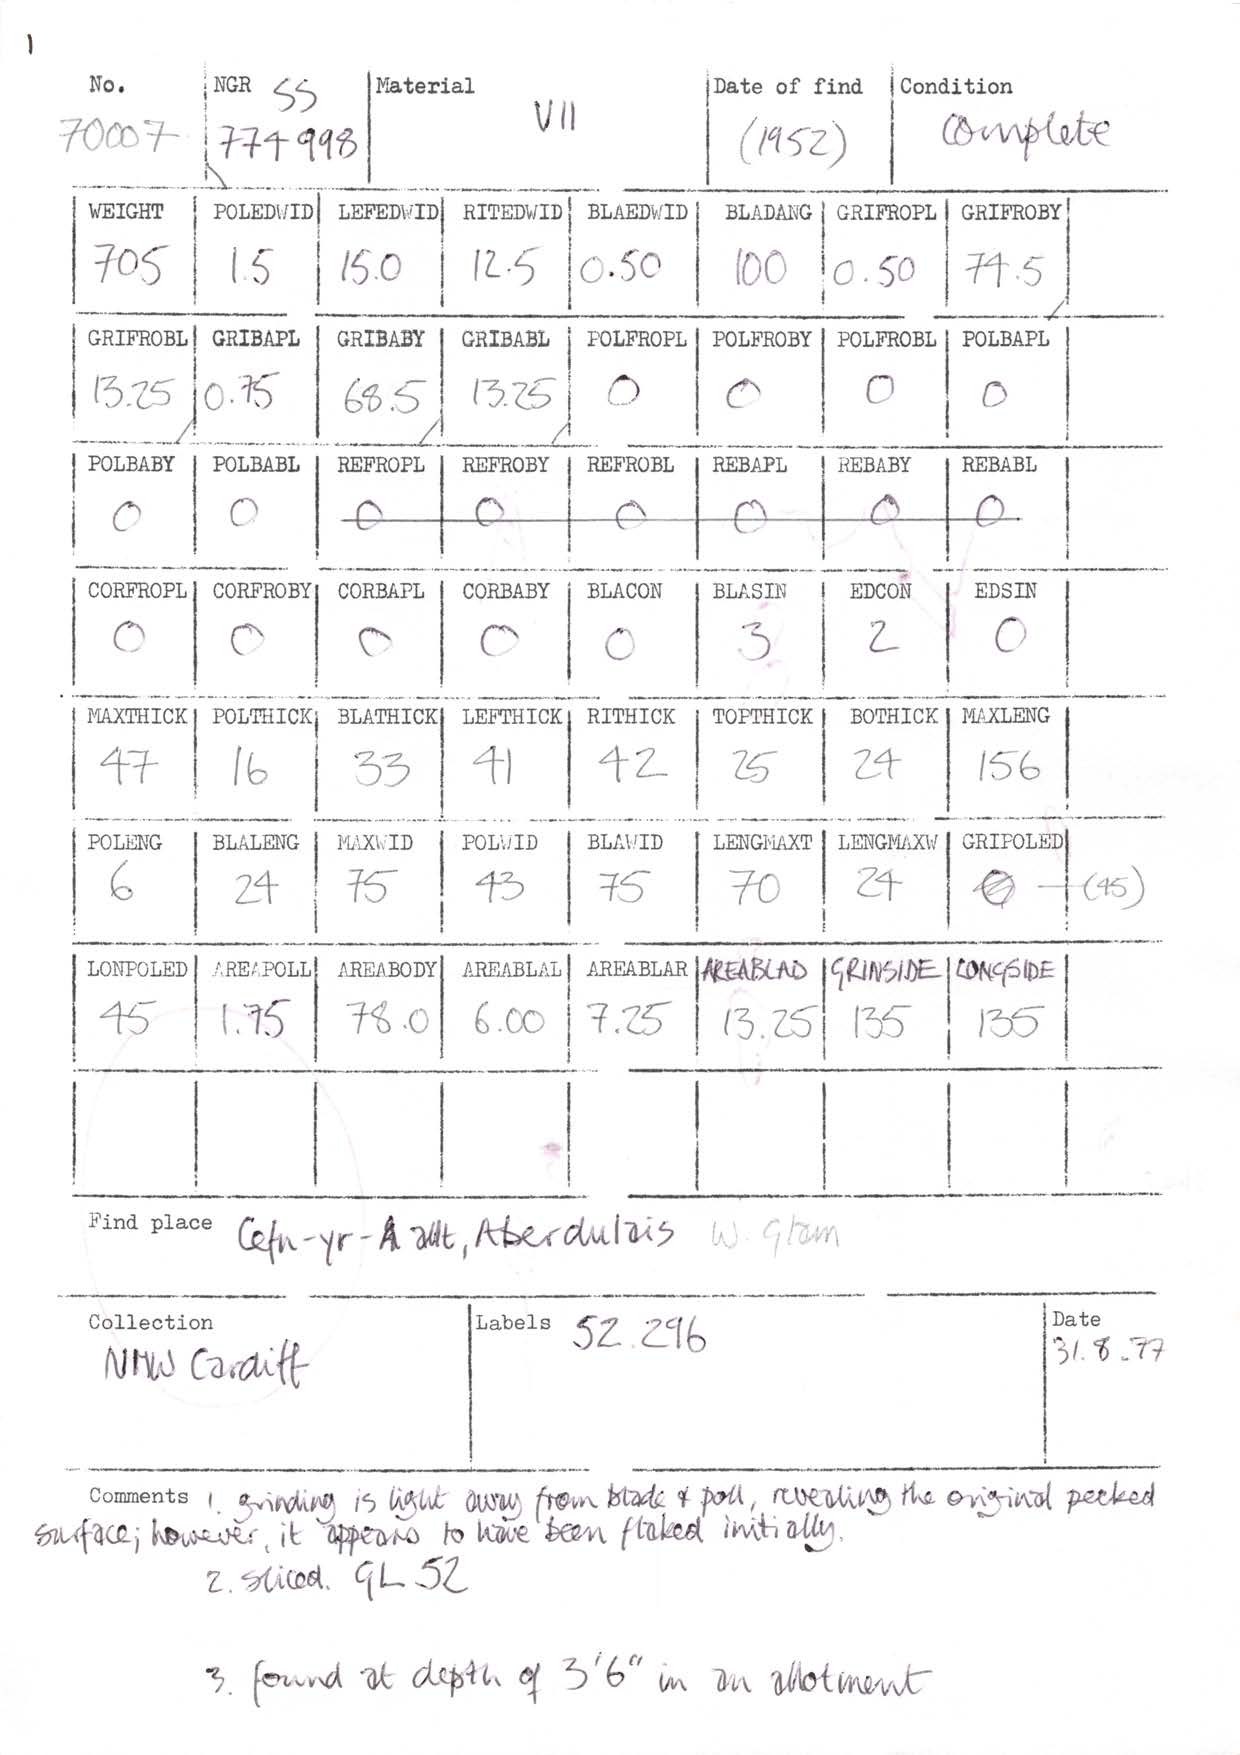 1
No. NGR SS Material Date of find Condition
70007 774998 VII (1952) complete
WEIGHT POLEDWID LEFEDWID RITEDWID BLAEDWID BLADANG GRIFROPL GRIFROBY
705 1.5 15.0 12.5 0.50 100 0.50 74.5
GRIFROBL GRIBAPL GRIBABY GRIBABL POLFROPL POLFROBY POLFROBL POLBAPL
13.25 0.75 68.5 13.25 0 0 0 0
POLBABY POLBABL REFROPL REFROBY REFROBL REBAPL REBABY REBABL
0 0 0 0 0 0 0 0
CORFROPL CORFROBY CORBAPL CORBABY BLACON BLASIN EDCON EDSIN
0 0 0 0 0 3 2 0
MAXTHICK POLTHICK BLATHICK LEFTHICK RITHICK TOPTHICK BOTHICK MAXLENG
47 16 33 41 42 25 24 156
POLENG BLALENG MAXWID POLWID BLAWID LENGMAXT LENGMAXW GRIPOLED
6 24 75 43 75 70 24 0 — (45)
LONPOLED AREAPOLL AREABODY AREABLAL AREABLAR AREABLAD GRINSIDE LONGSIDE
45 1.75 78.0 6.00 7.25 13.25 135 135
Find place Cefn-yr-Allt, Aberdulais W. Glam
Collection Labels 52.296 Date
NMW Cardiff 31.8.77
Comments 1. grinding is light away from blade & poll, revealing the original pecked
surface; however, it appears to have been flaked initially.
2. sliced. GL 52
3. found at depth of 3'6" in an allotment